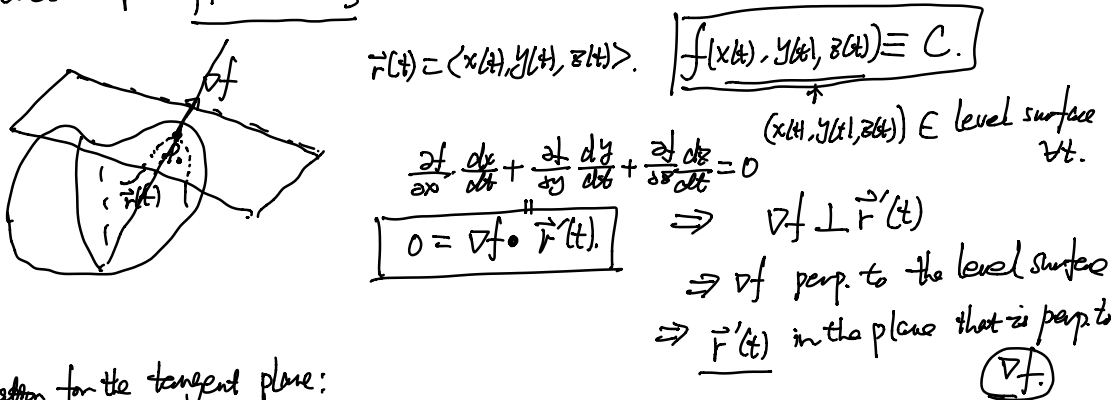 ∇f
r⃗(t) = ⟨x(t), y(t), z(t)⟩. f(x(t), y(t), z(t)) ≡ C.
↑
(x(t), y(t), z(t)) ∈ level surface
∀t.
P
r⃗(t)
∂f/∂x · dx/dt + ∂f/∂y dy/dt + ∂f/∂z dz/dt = 0
0 = ∇f • r⃗'(t).
⇒ ∇f ⊥ r⃗'(t)
⇒ ∇f perp. to the level surface
⇒ r⃗'(t) in the plane that is perp. to
∇f.
for the tangent plane: